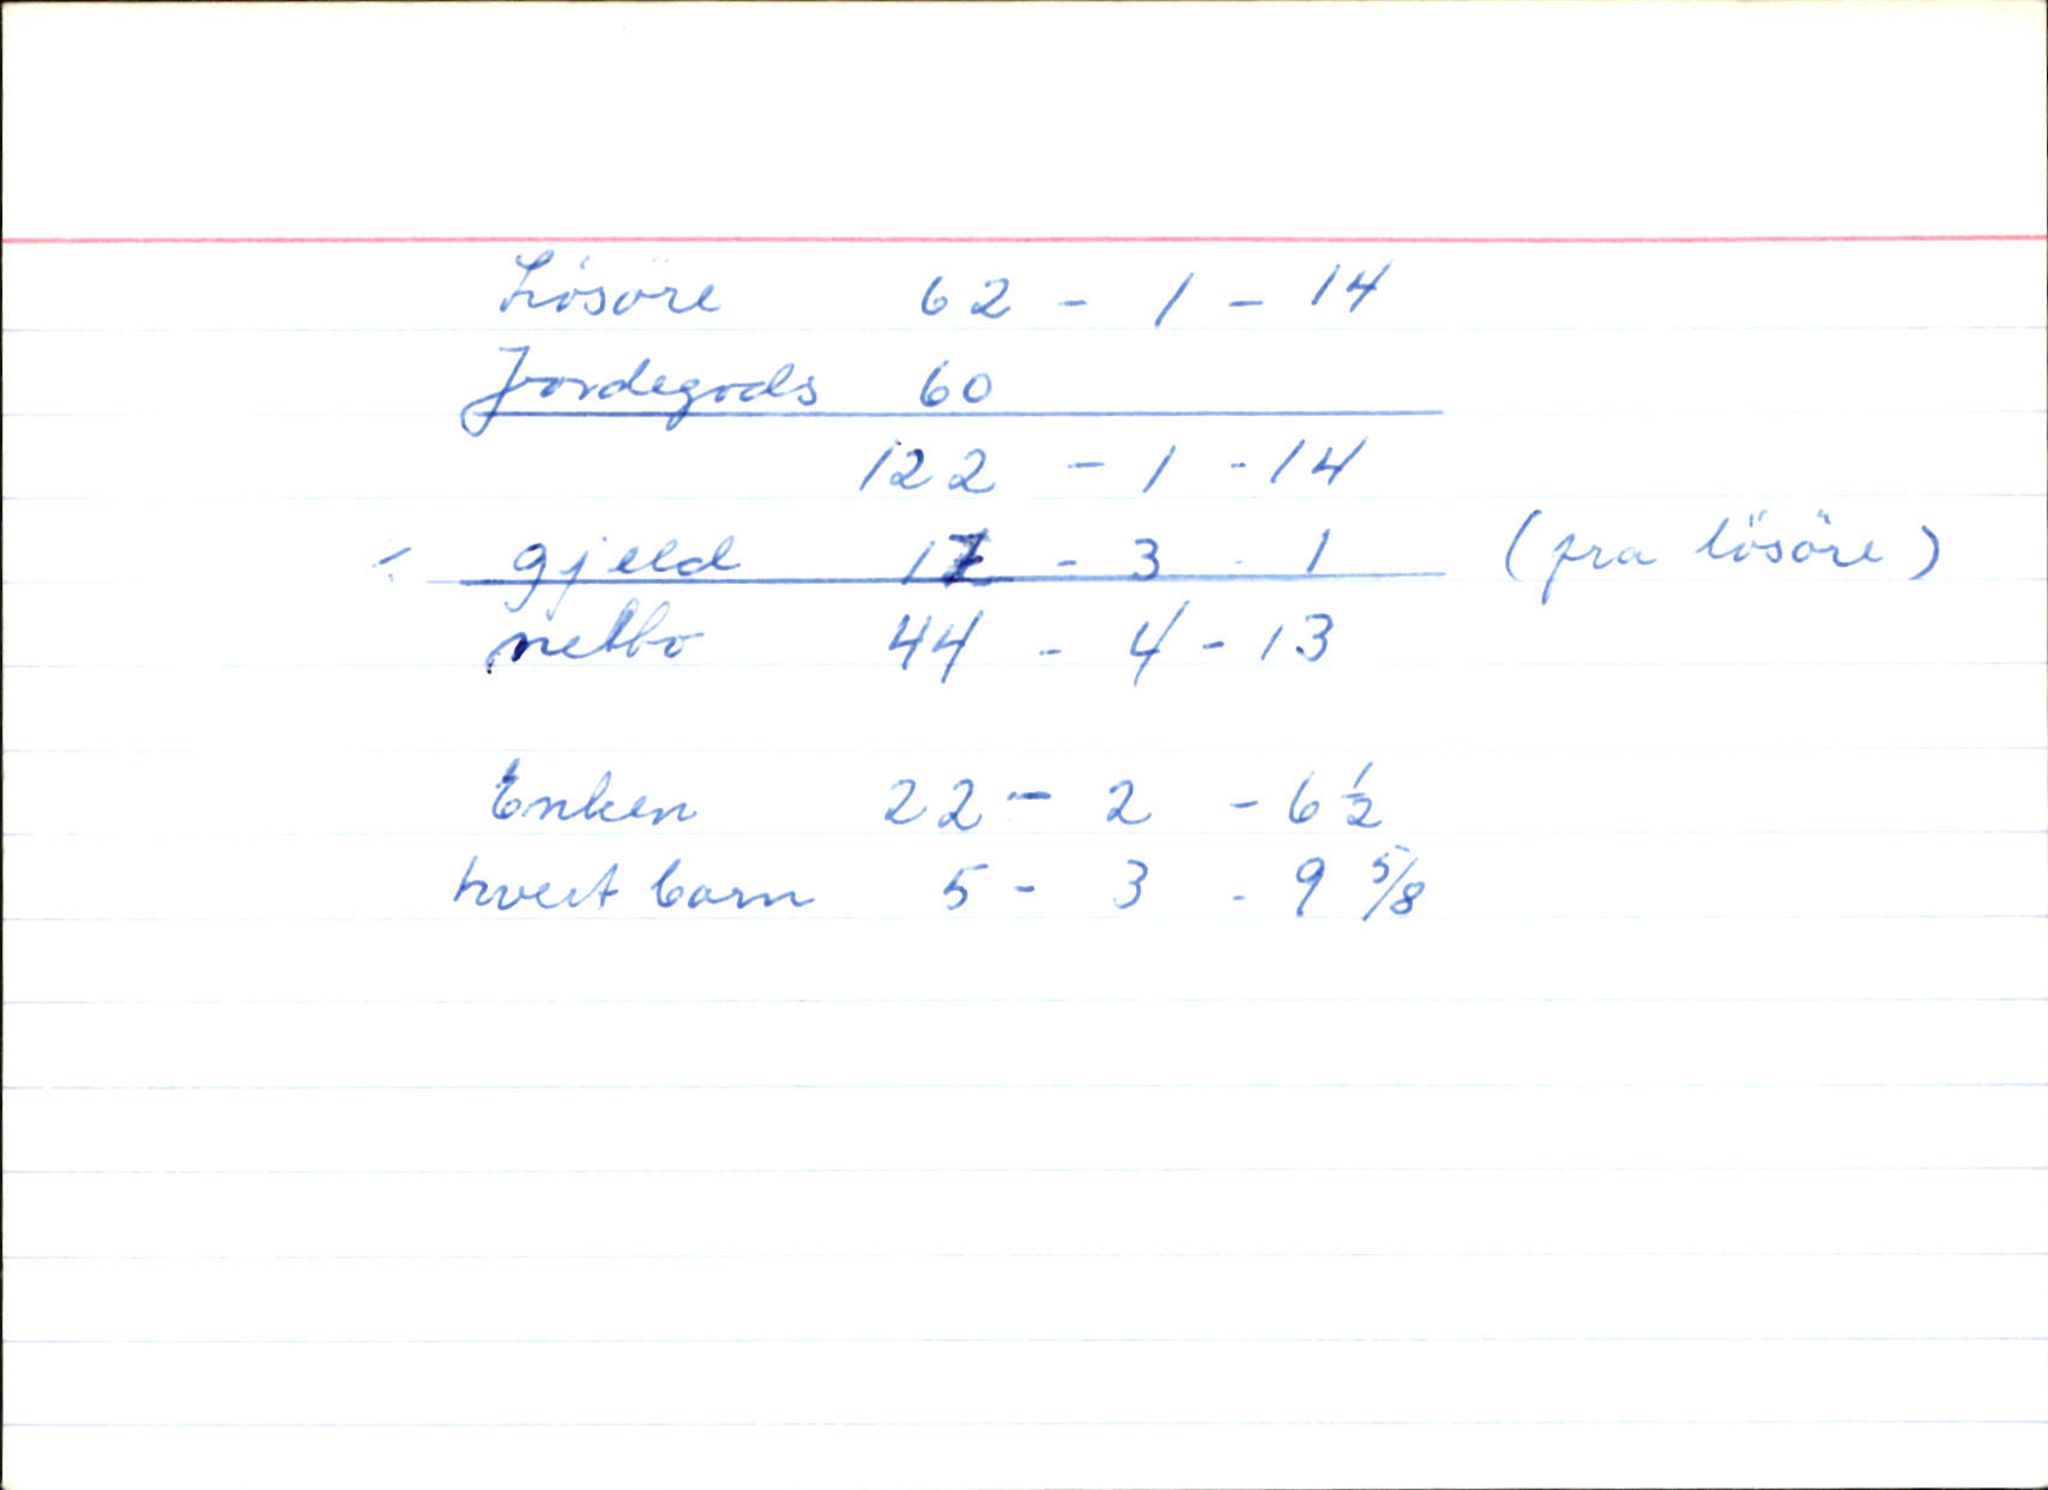 Lösöre 62 - 1 - 14
Jordegods 60
122 - 1 - 14
÷ gjeld 17 - 3 - 1 (fra lösöre)
netto 44 - 4 - 13
Enken 22 - 2 - 6 ½
hvert barn 5 - 3 - 9 5/8